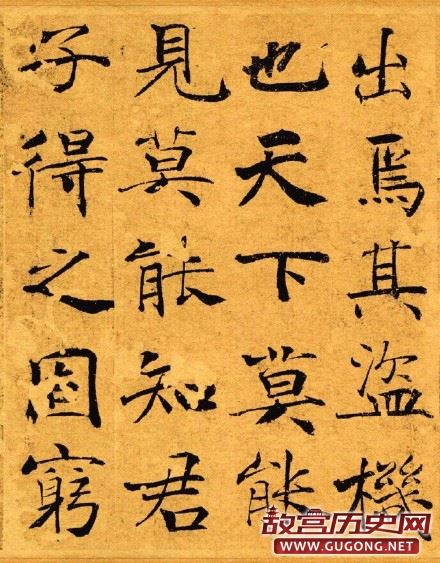 出焉其盜機
也天下莫能
見莫能知君
子得之固窮
故宫历史网
WWW.GUGONG.NET